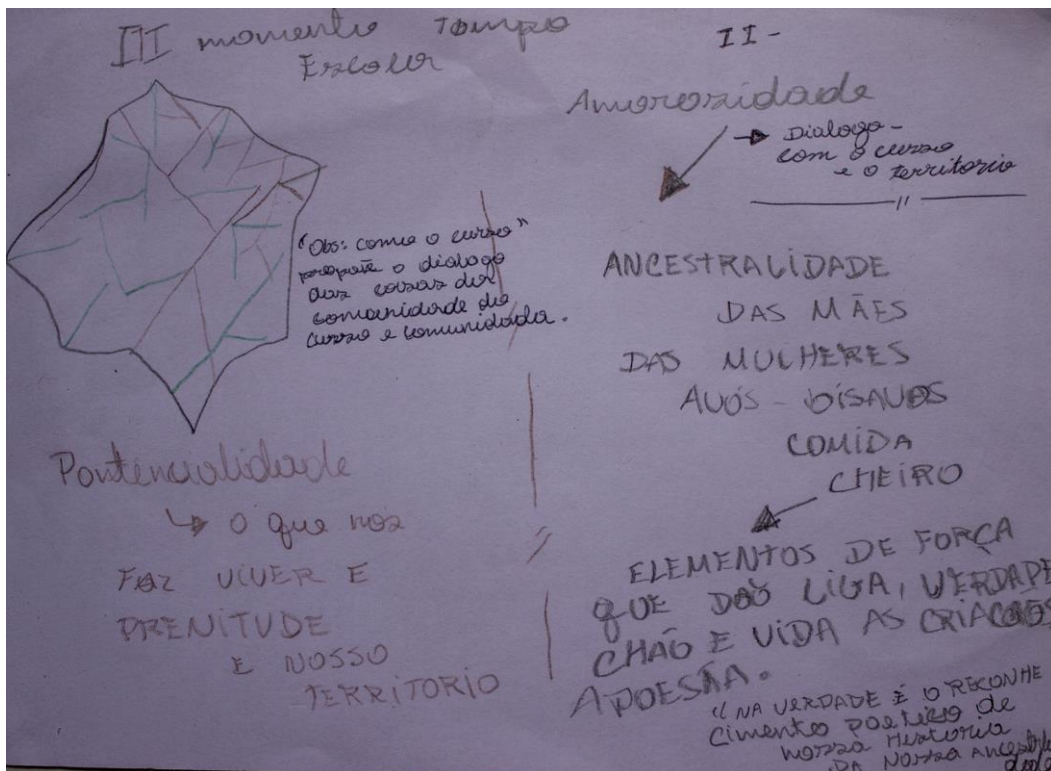 III momento Tempo
Escolar
"Obs: como o curso"
propõe o dialogo
das coisas da
comunidade do
curso e comunidada.
Pontencialidade
↳ O que nos
FAZ VIVER E
PRENITUDE
E NOSSO
TERRITORIO
II -
Amorosidade
→ Dialogo -
com o curso
e o territorio
ANCESTRALIDADE
DAS MÃES
DAS MULHERES
AVÓS - BISAVOS
COMIDA
CHEIRO
ELEMENTOS DE FORÇA
QUE DÃO LIGA, VERDADE
CHÃO E VIDA AS CRIACOES
A POESIA.
"NA VERDADE É O RECONHE
cimento poetico de
nossa Historia
DA NOSSA